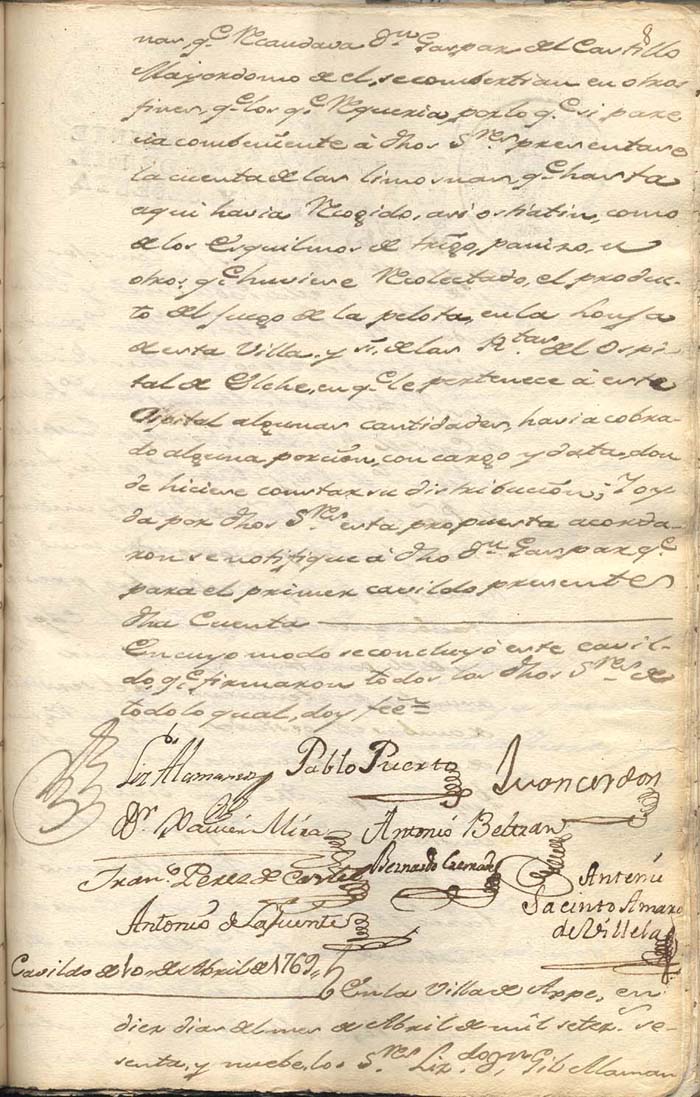 8
nas, q.e Recaudava D.n Gaspar del Castillo
Mayordomo de el, se combertian en otros
fines, q.e los q.e Requeria, por lo q.e si pare
cia combeniente â dhos S.res presentase
la cuenta de las limosnas, q.e hasta
aqui havia Recogido, asi ostiatin, como
de los Esquilmos de trigo, panizo, u
otros, q.e huviese Recolectado, el produc-
to del juego de la pelota, en la honsa
de esta Villa, y si de las R.tas del Ospi-
tal de Elche, en q.e le pertenece â este
Ospital algunas cantidades, havia cobra-
do alguna, porcion, con cargo y data, don
de hiciese constar su distribucion; Y oy-
da por dhos S.res esta propuesta acorda-
ron se notifique â dho D.n Gaspar q.e
para el primer cavildo presente
dha Cuenta
En cuyo modo se concluyó este cavil-
do, q.e firmaron todos los dhos S.res de
todo lo qual, doy fee=
Liz.do Alamanzo Pablo Puerto Juan cerdon
D.r Mira Antonio Beltran
Fran.co Perez de Bernardo
Antonio de Lafuente
Antt.mi
Jacinto Amaro
de Villela
Cavildo de 10 de Abril de 1769
En la Villa de Aspe, en
diez dias del mes de Abril de mil seter.s se-
senta, y nuebe, los S.res Liz.do D.n Gil Alaman